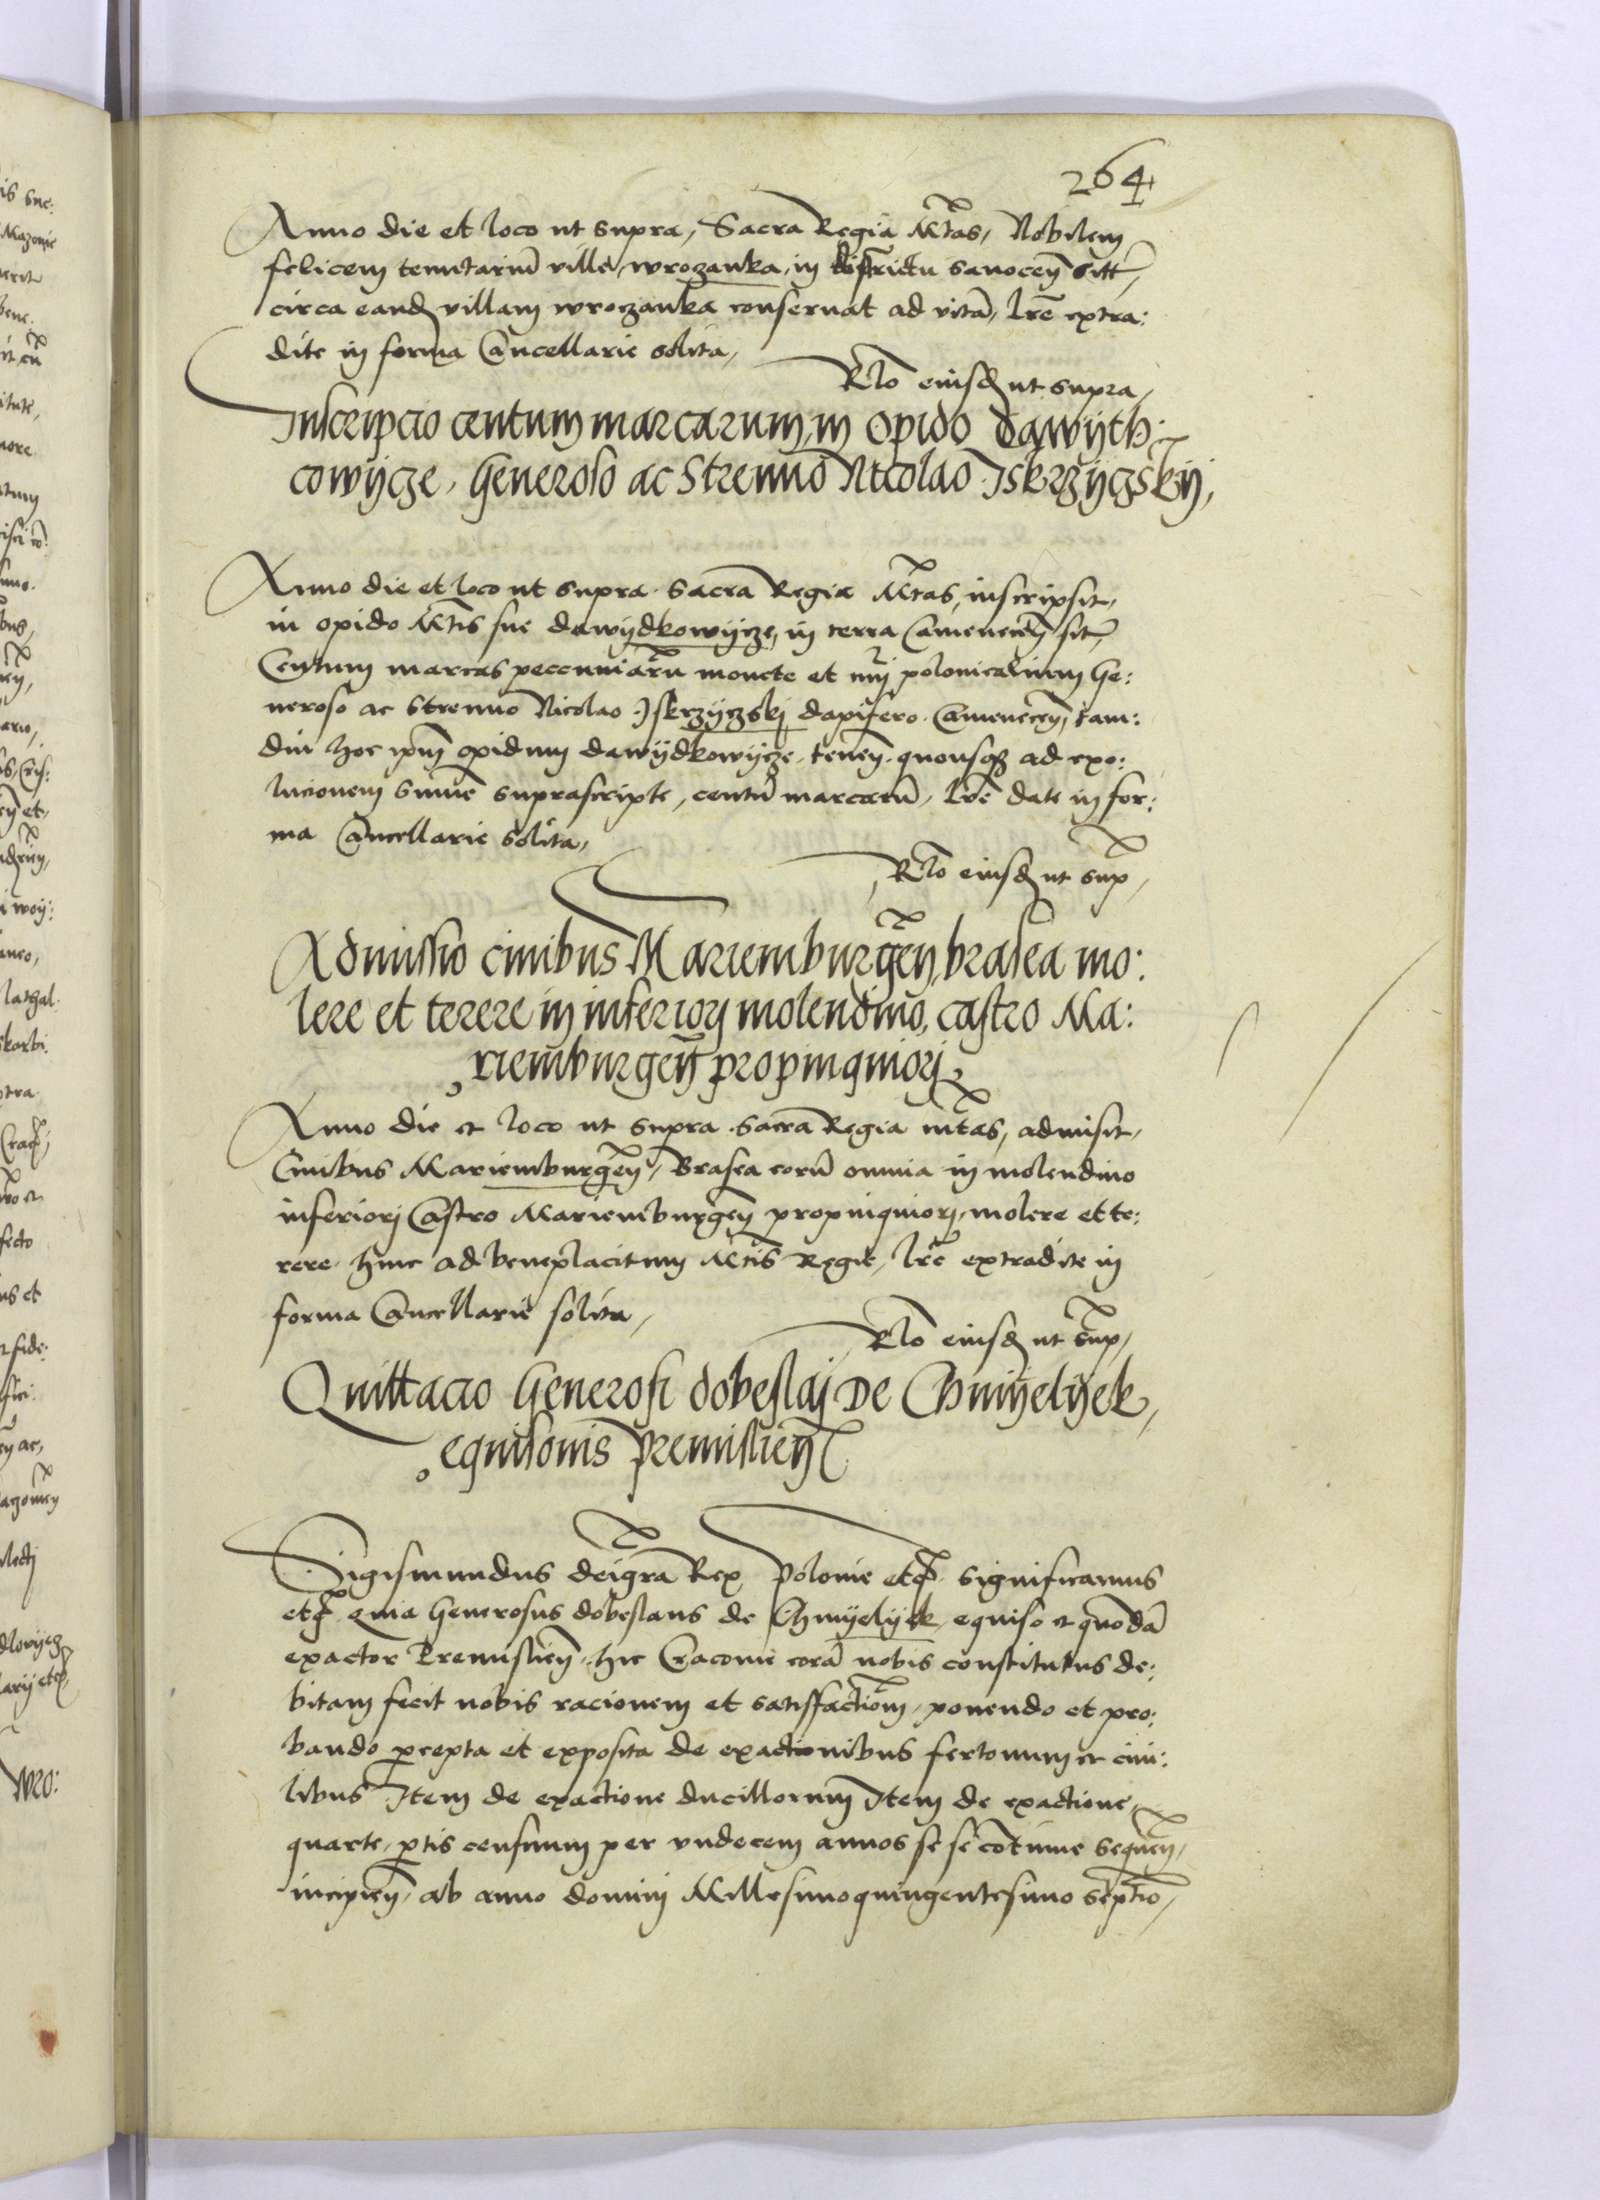 264
Anno die et loco ut supra, Sacra Regia Mtas, Nobilem
felicem tenutariū ville, wrozanka, in districtu sanoceñ sitt,
circa eand villam wroczanka conseruat ad vitā, lrē extra:
dite in forma Cancellarie solita,
Rlō eiusd ut supra,
Inscripcio centum marcarum, in opido dawyth:
cowycze, Generoso ac Strenuo Nicolao Iskrzyczskij,
Anno die et loco ut supra Sacra Regia Mtas, inscripsit,
in opido Mtis sue dawydkowycze, in terra Cameneceñ sit,
Centum marcas peccuniarū monete et nūi polonicalium Ge:
neroso ac Strenuo Nicolao Iskrzyczskj dapifero Cameneceñ, tam:
diu hoc ipm opidum dawydkowycze, teneñ quousq ad exo:
lucionem summe suprascripte, centū marcarū, lrē date in for:
ma Cancellarie solita,
Rlō eiusd ut sup,
Admissio ciuibus Mariemburgeñ, brasea mo:
lere et terere in inferiorj molendino, castro Ma:
riemburgeñ propinquiorj,
Anno die et loco ut supra Sacra Regia mtas, admisit,
Ciuibus Mariemburgeñ, Brasea eorū omnia in molendino
inferiorj Castro Mariemburgeñ propinquiorj, molere et te:
rere hinc ad beneplacitum Mtis Regie, lrē extradite in
forma Cancellarie solita,
Rlō eiusd ut sup,
Quittacio Generosi dobeslaj De Chmyelyek,
equisonis premislieñ
Sigismundus dei gra Rex Polonie etc significamus
etc quia Generosus dobeslaus de Chmyelyek, equiso et quondā
exactor Premislieñ, hic Cracouie corā nobis constitutus de:
bitam fecit nobis racionem et satisfactiom, ponendo et pro:
bando pcepta et exposita de exactionibus fertonum et ciui:
libus Item de exactione ducillorum Item de exactione,
quarte, ptis censuum per vndecem annos se se cōtinue sequeñ,
incipieñ, ab anno dominj Millesimoquingentesimo septīo,